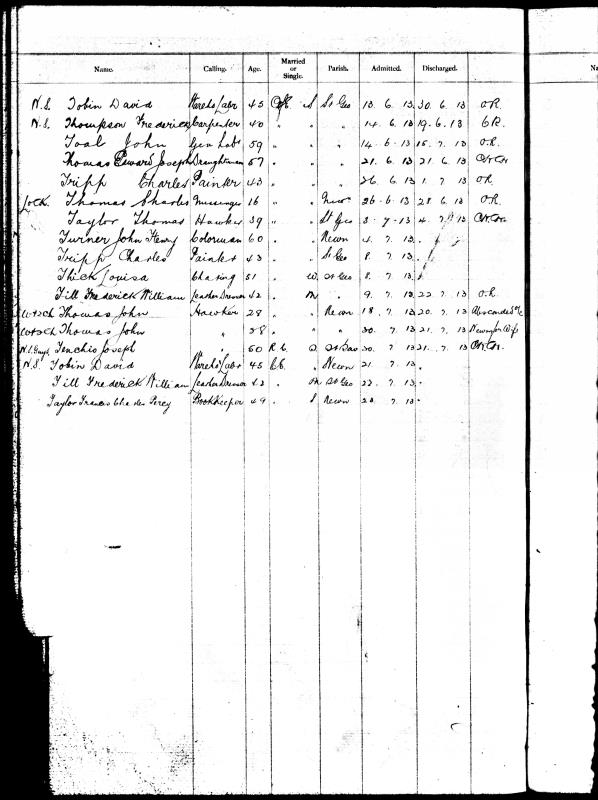 Name. Calling. Age. Married or Single. Parish. Admitted. Discharged. Na
N.S. Tobin David Wareho Labr 45 CofE S St Geo 13. 6. 13 30. 6. 13 O.R.
N.S. Thompson Frederick Carpenter 40 " " " 14. 6. 13 19. 6. 13 O.R.
Toal John Gen Labr 59 " " " 14. 6. 13 15. 7. 13 O.R.
Thomas Edward Joseph Draughtsman 57 " " " 21. 6. 13 21. 6. 13
Tripp Charles Painter 43 " " " 26. 6. 13 1. 7. 13 O.R.
Lock. Thomas Charles Messenger 16 " " Newn 26. 6. 13 28. 6. 13 O.R.
Taylor Thomas Hawker 39 " " St Geo 3. 7. 13 4. 7. 13
Turner John Henry Colorman 60 " " Newn 4. 7. 13.
Tripp Charles Painter 43 " " St Geo 8. 7. 13.
Thick Louisa Charing 51 " W. St Geo 8. 7. 13.
Till Frederick William Leather Dresser 42 . M " 9. 7. 13. 22. 7. 13 O.R.
Thomas John Hawker 28 " " Newn 18. 7. 13 20. 7. 13 Absconded
Thomas John " 28 " " " 20. 7. 13. 21. 7. 13
Joseph 60 R.C. 20. 7. 13 21. 7. 13
N.S. Tobin David Wareho Labr 45 C.E. . Newn 21. 7. 13.
Till Frederick William Leather Dresser 42 . M St Geo 22. 7. 13.
Taylor Francis Charles Percy Bookkeeper 49 . S Newn 23. 7. 13.